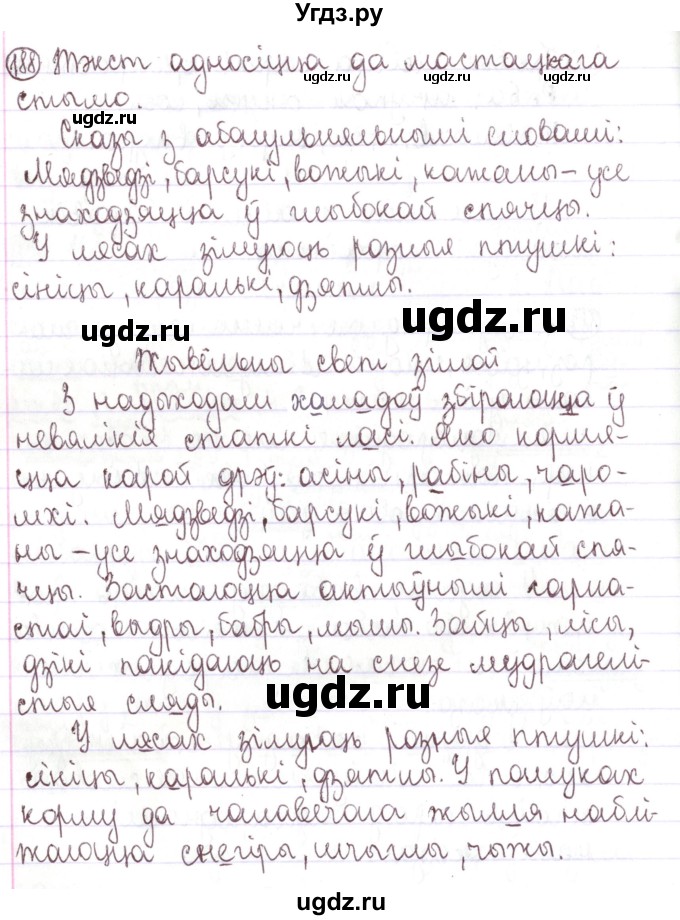 Угдз.ру
188 Тэкст адносіцца да мастацкага
стылю.
Сказы з абагульняльнымі словамі:
Мядзведзі, барсукі, вожыкі, кажаны – усе
знаходзяцца ў глыбокай спячцы.
У лясах зімуюць розныя птушкі:
сініцы, каралькі, дзятлы.
Жывёльны свет зімой
З надыходам халадоў збіраюцца ў
невялікія статкі ласі. Яно кормя-
цца карой дрэў: асіны, рабіны, чаро-
мхі. Мядзведзі, барсукі, вожыкі, кажа-
ны – усе знаходзяцца ў глыбокай спя-
чцы. Застаюцца актыўнымі гарна-
стаі, выдры, бабры, мышы. Зайцы, лісы,
дзікі пакідаюць на снезе мудрагелі-
стыя сляды.
У лясах зімуюць розныя птушкі:
сініцы, каралькі, дзятлы. У пошуках
корму да чалавечага жылля наблі-
жаюцца снегіры, шчыглы, чыжы.
ugdz.ru
ugdz.ru
ugdz.ru
ugdz.ru
ugdz.ru
ugdz.ru
ugdz.ru
ugdz.ru
ugdz.ru
ugdz.ru
ugdz.ru
ugdz.ru
ugdz.ru
ugdz.ru